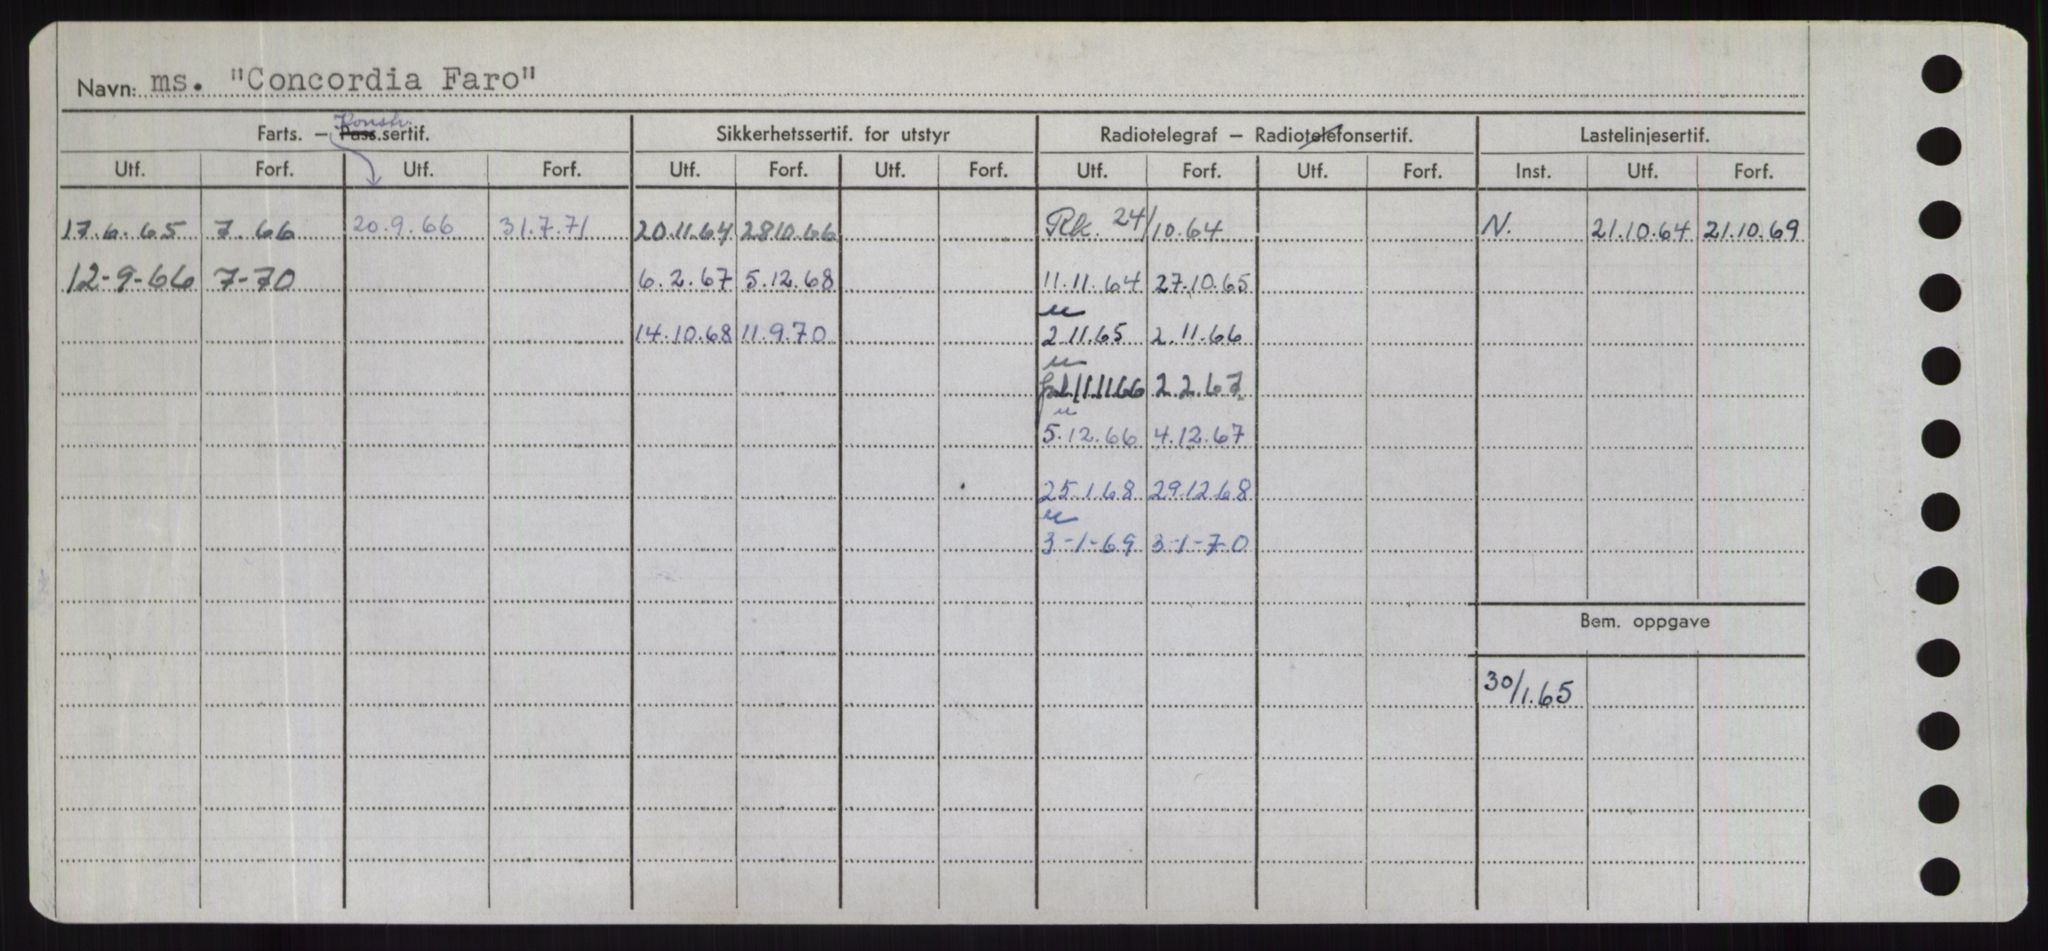 Navn: ms. "Concordia Faro"
Farts. — Konstr. Pass.sertif. Sikkerhetssertif. for utstyr Radiotelegraf — Radiotelefonsertif. Lastelinjesertif.
Utf. Forf. Utf. Forf. Utf. Forf. Utf. Forf. Utf. Forf. Utf. Forf. Inst. Utf. Forf.
17.6.65 7.66 20.9.66 31.7.71 20.11.64 28.10.66 Rk. 24/10.64 N. 21.10.64 21.10.69
12-9-66 7-70 6.2.67 5.12.68 11.11.64 27.10.65
14.10.68 11.9.70 2.11.65 2.11.66
11.11.66 2.2.67
5.12.66 4.12.67
25.1.68 29.12.68
3-1-69 3-1-70
Bem. oppgave
30/1.65